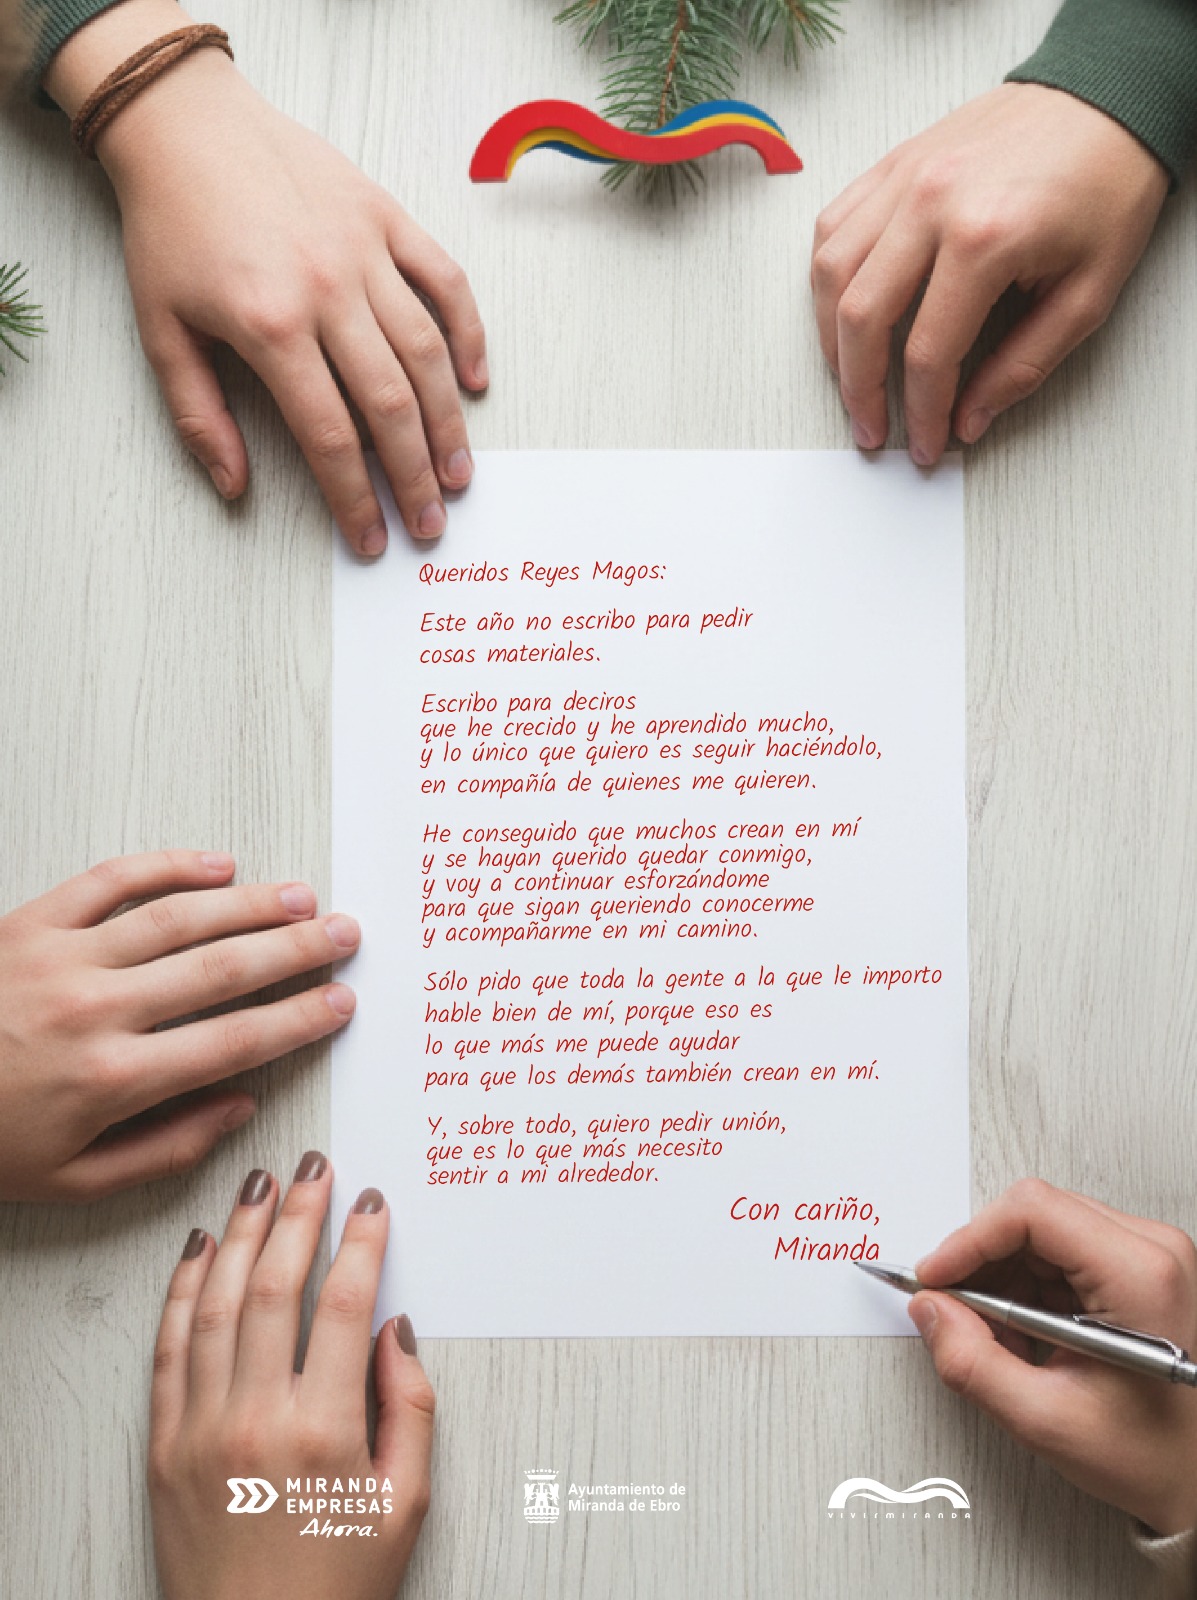 Queridos Reyes Magos:
Este año no escribo para pedir
cosas materiales.
Escribo para deciros
que he crecido y he aprendido mucho,
y lo único que quiero es seguir haciéndolo,
en compañía de quienes me quieren.
He conseguido que muchos crean en mí
y se hayan querido quedar conmigo,
y voy a continuar esforzándome
para que sigan queriendo conocerme
y acompañarme en mi camino.
Sólo pido que toda la gente a la que le importo
hable bien de mí, porque eso es
lo que más me puede ayudar
para que los demás también crean en mí.
Y, sobre todo, quiero pedir unión,
que es lo que más necesito
sentir a mi alrededor.
Con cariño,
Miranda
MIRANDA
EMPRESAS
Ahora.
Ayuntamiento de
Miranda de Ebro
VIVIRMIRANDA